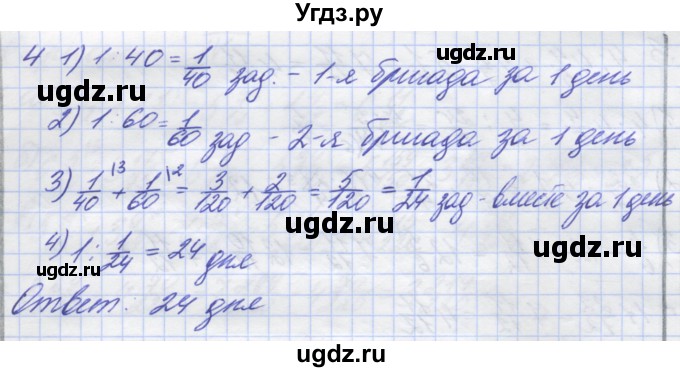 Угдз.ру
4 1) 1:40 = 1/40 зад. - 1-я бригада за 1 день
ugdz.ru ugdz.ru
2) 1:60 = 1/60 зад - 2-я бригада за 1 день
ugdz.ru
3) 1/40 |3 + 1/60 |2 = 3/120 + 2/120 = 5/120 = 1/24 зад - вместе за 1 день
ugdz.ru ugdz.ru
4) 1 : 1/24 = 24 дня
ugdz.ru ugdz.ru
Ответ: 24 дня
ugdz.ru
ugdz.ru